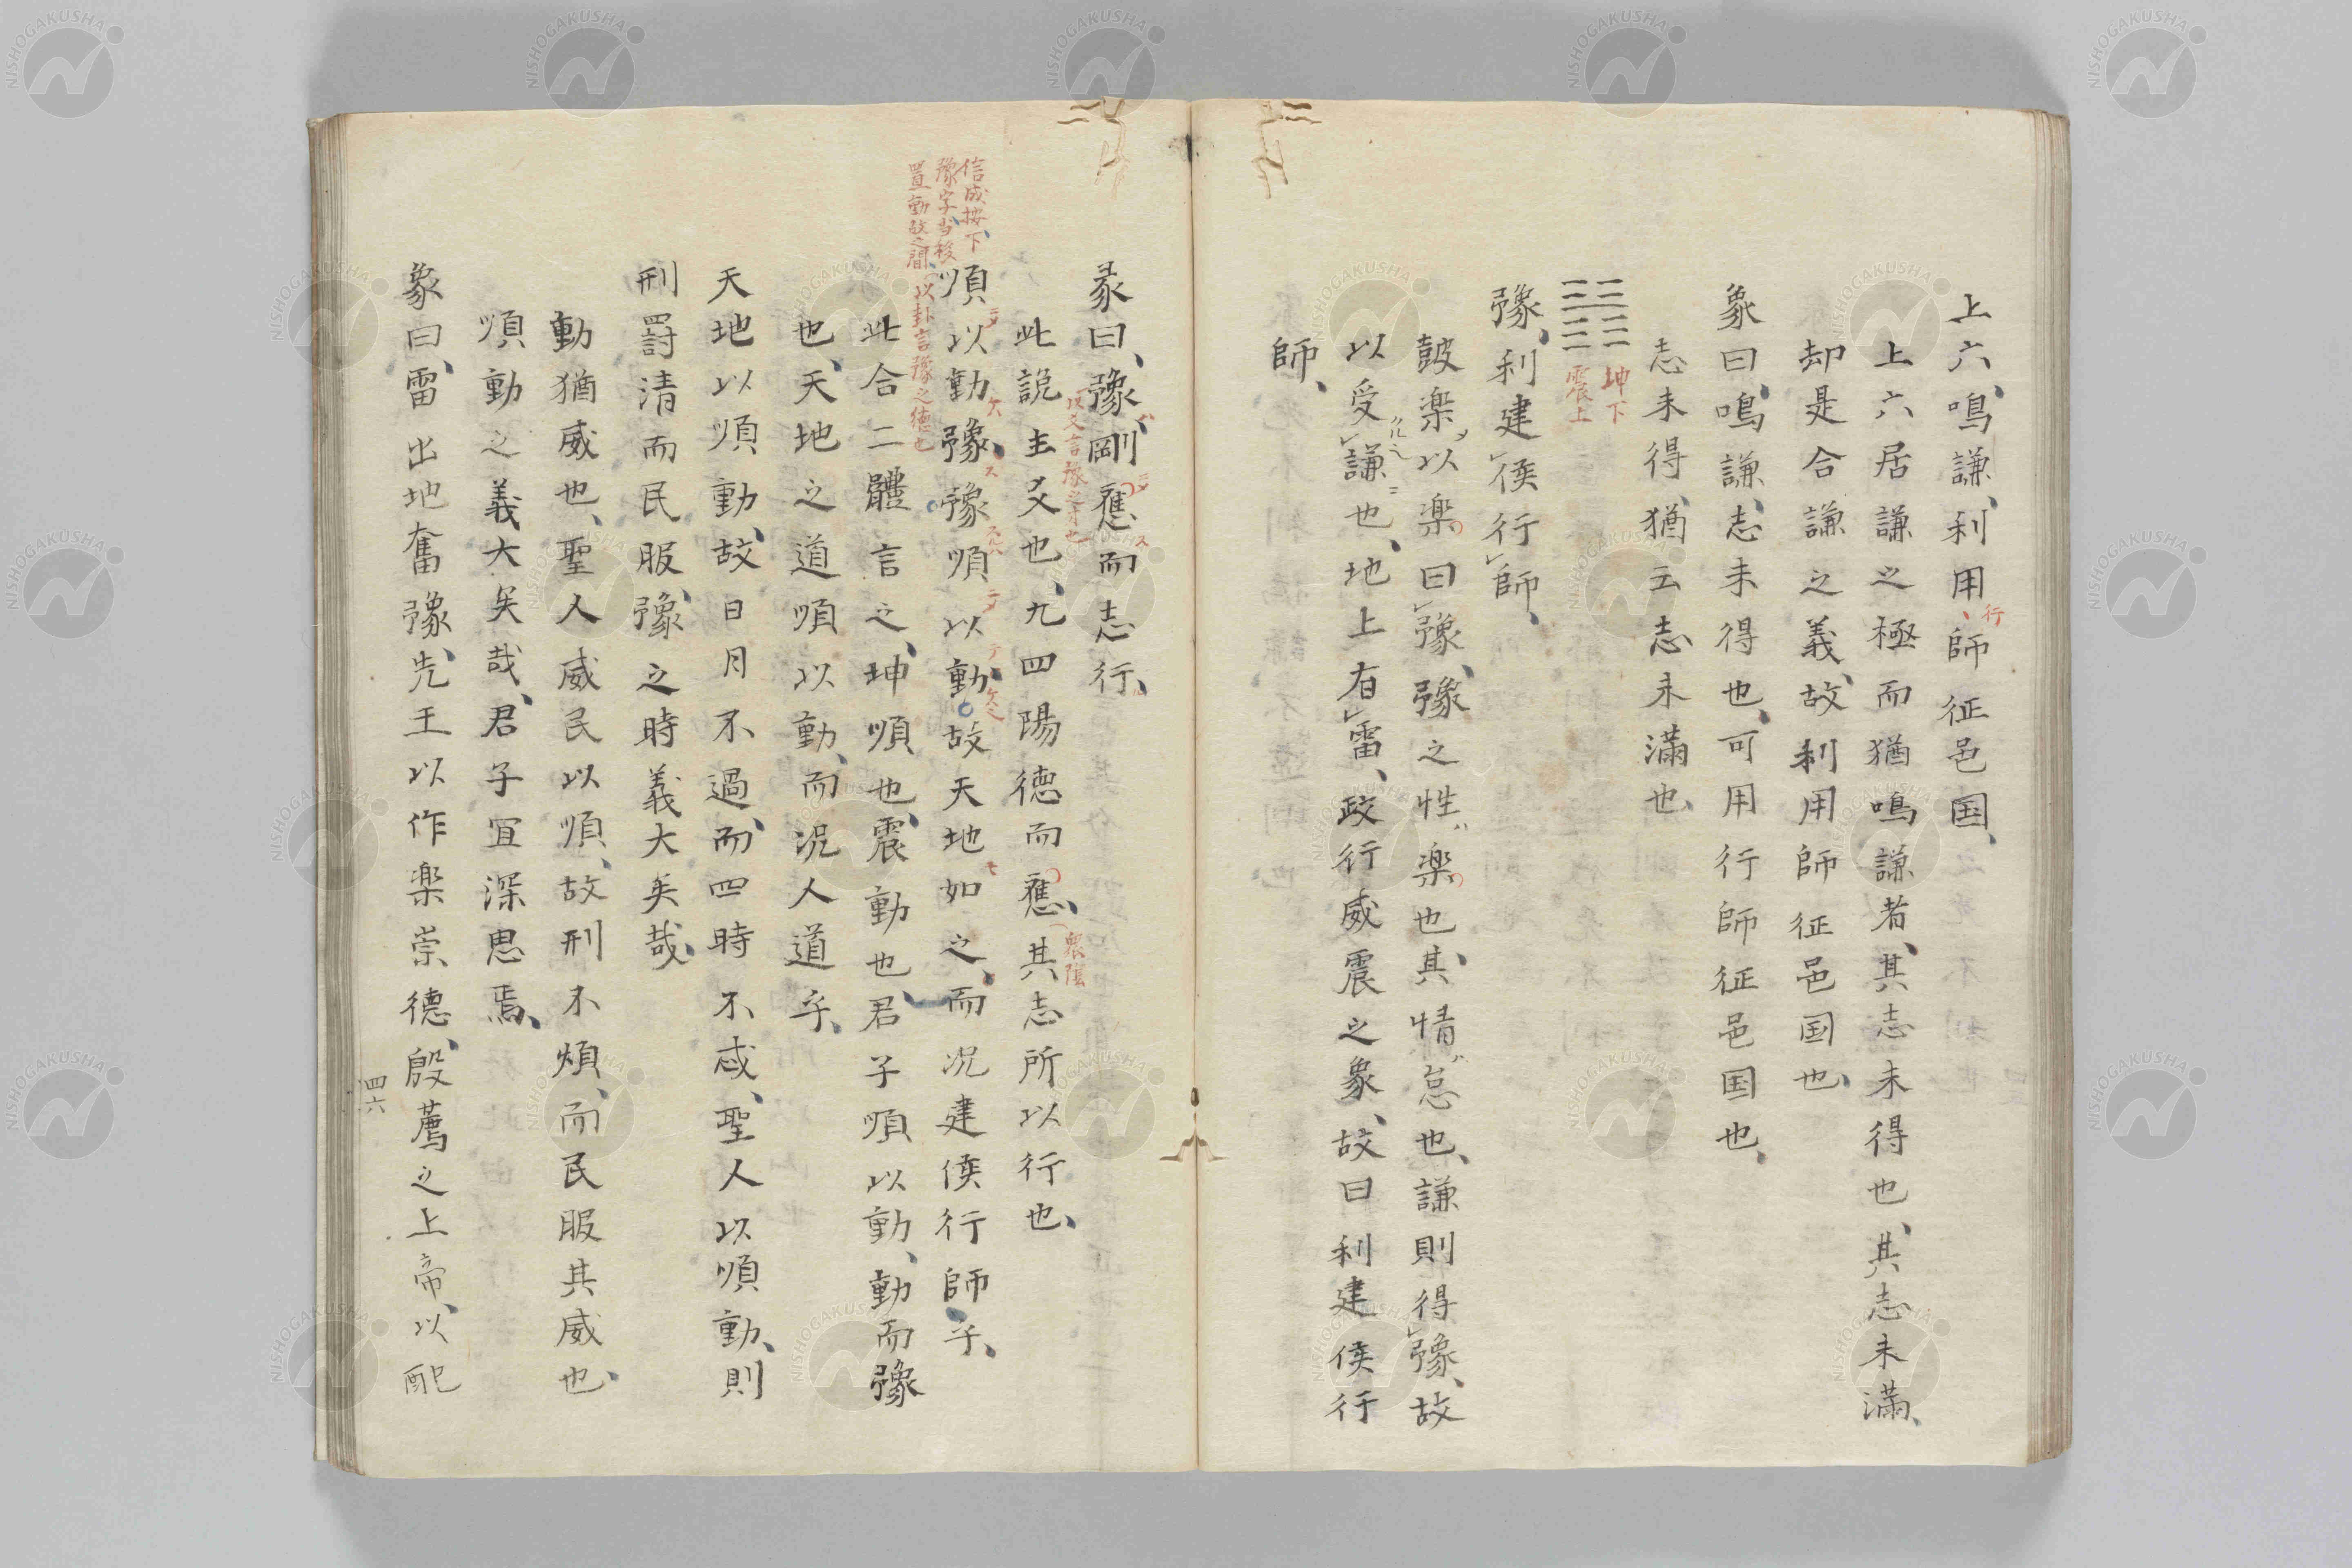 上六、鳴謙、利用行師征邑国、
上六居謙之極而猶鳴謙者、其志未得也、其志未滿、
却是合謙之義、故利用師征邑国也、
象曰、鳴謙、志未得也、可用行師征邑国也、
志未得、猶云志未滿也、
坤下
震上
豫、利建侯行師、
鼓楽以楽曰豫、豫之性楽也、其情怠也、謙則得豫、故
以受謙也、地上有雷、政行威震之象、故曰利建侯行
師、
彖曰、豫、剛應而志行、
此說主爻也、九四陽德而應、其志所以行也、
衆陰
順以動豫、豫順以動、故天地如之、而況建侯行師乎、
信成按下
豫字当移
置動故之間
以卦言豫之德也
此合二體言之、坤順也、震動也、君子順以動、動而豫
也、天地之道順以動、而況人道乎、
天地以順動、故日月不過、而四時不忒、聖人以順動、則
刑罰清而民服、豫之時義大矣哉、
動猶威也、聖人威民以順、故刑不煩、而民服其威也、
順動之義大矣哉、君子宜深思焉、
象曰、雷出地奮豫、先王以作楽崇德、殷薦之上帝、以配
四六
NISHOGAKUSHA